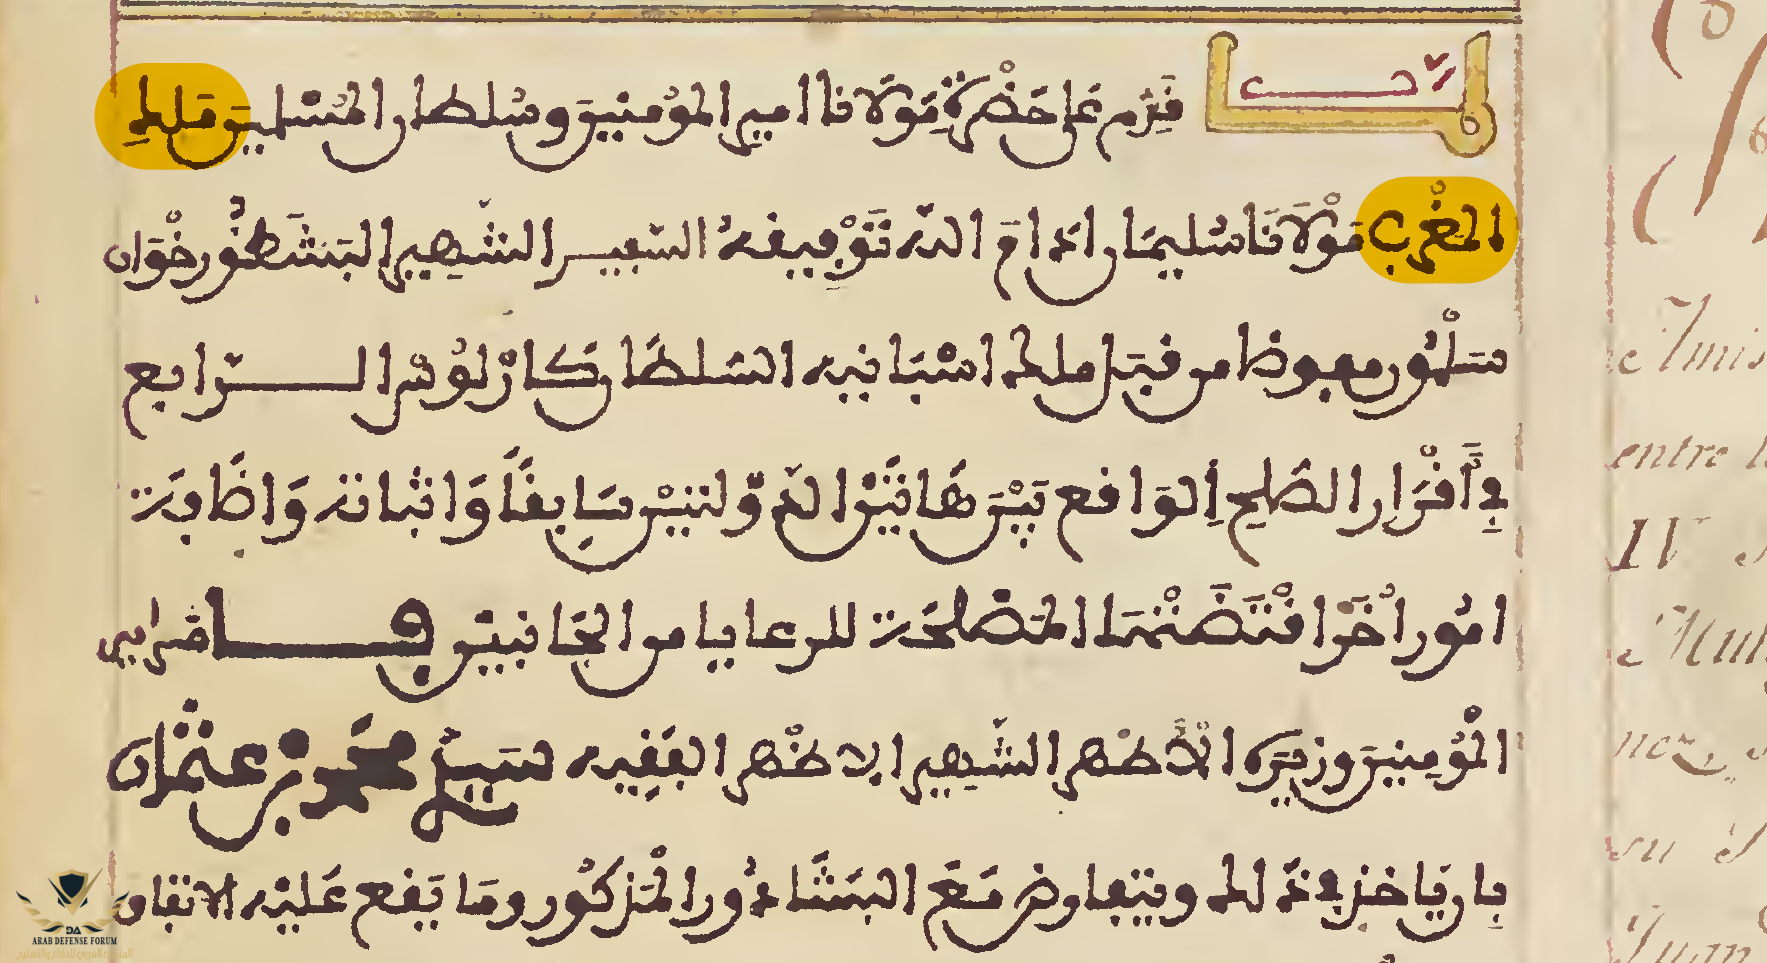 لما
قدم على حضرة مولانا امير المومنين وسلطان المسلمين ملك
المغرب مولانا سليمان ادام الله توفيقه السفير الشهير البشظور خوان
سلمون مبعوظا من قبل ملك اسبانيه السلطان كارلوس الرابع
في أقرار الصلح الواقع بين هاتين الدولتين سابقا واثباته واظافة
امور اخرا قتضتها المصلحة للرعايا من الجانبين فامر امير
المومنين وزيره الأطهر الشهير الاظهر الفقيه سيدي محمد بن عثمان
بان ياخذ في ذلك ويتفاوض مع البشادور المذكور وما يقع عليه الاتفاق
entre
IV
ARAB DEFENSE FORUM
المنتدى العربي للدفاع والتسليح